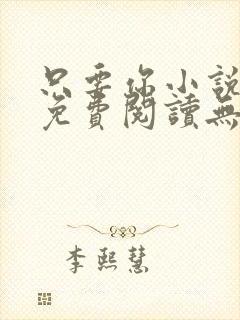 只要你小說
免費閱讀無
李熙慧